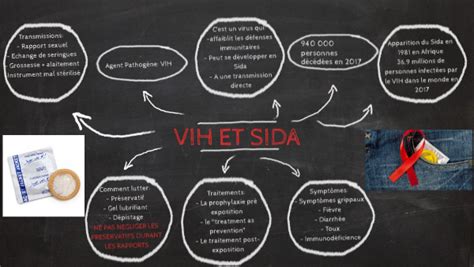 Transmissions:
- Rapport sexuel
- Echange de seringues
- Grossesse + allaitement
Instrument mal stérilisé
Agent Pathogène: VIH
C'est un virus qui
-affaiblit les défenses
immunitaires
- Peut se développer en
Sida
- A une transmission
directe
940 000
personnes
décédées en 2017
Apparition du Sida en
1981 en Afrique
36,9 millions de
personnes infectées par
le VIH dans le monde en
2017
VIH ET SIDA
Comment lutter:
- Préservatif
- Gel lubrifiant
- Dépistage
NE PAS NEGLIGER LES
PRESERVATIFS DURANT
LES RAPPORTS
Traitements:
- La prophylaxie pré
exposition
- le "treatment as
prevention"
- Le traitement post-
exposition
Symptômes:
- Symptômes grippaux
- Fièvre
- Diarrhée
- Toux
- Immunodéficience